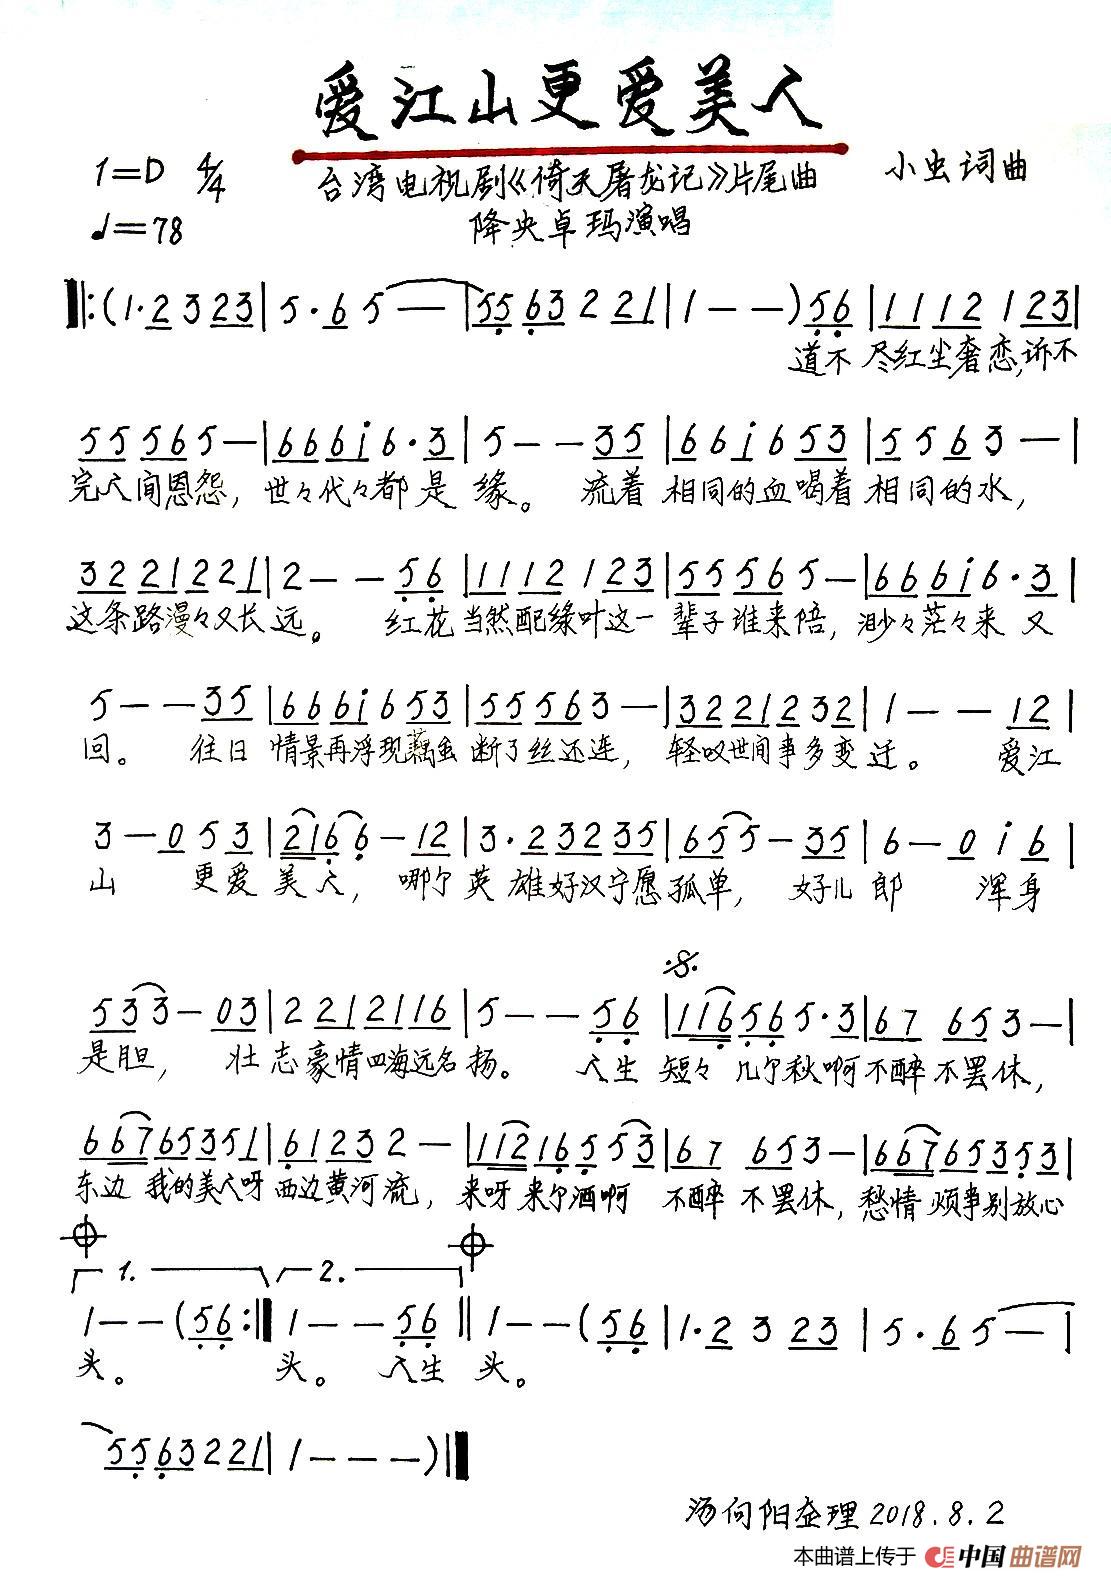 爱江山更爱美人
1=D 4/4 台湾电视剧《倚天屠龙记》片尾曲 小虫词曲
♩=78 降央卓玛演唱
‖:(1·2 3 23 | 5·6 5 — | 55 63 2 21 | 1 — — ) 56 | 11 12 1 23 |
道不 尽红尘奢恋,诉不
55 56 5 — | 66 6i 6·3 | 5 — — 35 | 66 i6 53 | 55 63 — |
完人间恩怨, 世々代々都是缘。 流着 相同的血喝着 相同的水,
32 21 22 1 | 2 — — 56 | 11 12 1 23 | 55 56 5 — | 66 6i 6·3 |
这条路漫々又长 远。 红花 当然配绿叶这一 辈子谁来陪, 渺々茫々来 又
5 — — 35 | 66 6i 6 53 | 55 56 3 — | 32 21 2 32 | 1 — — 12 |
回。 往日 情景再浮现藕虽 断了丝还连, 轻叹世间事多变 迁。 爱江
3 — 0 5 3 | 216 6 — 12 | 3·2 32 35 | 65 5 — 35 | 6 — 0 i 6 |
山 更爱 美 人, 哪个 英 雄好汉宁愿 孤单, 好儿 郎 浑身
53 3 — 03 | 2 21 21 16 | 5 — — 56 | 116 56 5·3 | 67 65 3 — |
是胆, 壮 志豪情四海远名 扬。 人生 短々 几个秋啊 不醉 不罢休,
6 67 65 35 1 | 61 23 2 — | 112 165 53 | 67 65 3 — | 667 65 35 3 |
东边 我的美人呀 西边黄河流, 来呀 来个酒啊 不醉 不罢休, 愁情 烦事别放心
1. 2.
1 — — (56 :‖ 1 — — 56 ‖ 1 — — (56 | 1·2 3 23 | 5·6 5 — |
头。 头。 人生 头。
55 63 2 21 | 1 — — — )‖
汤向阳整理 2018.8.2
本曲谱上传于 中国曲谱网